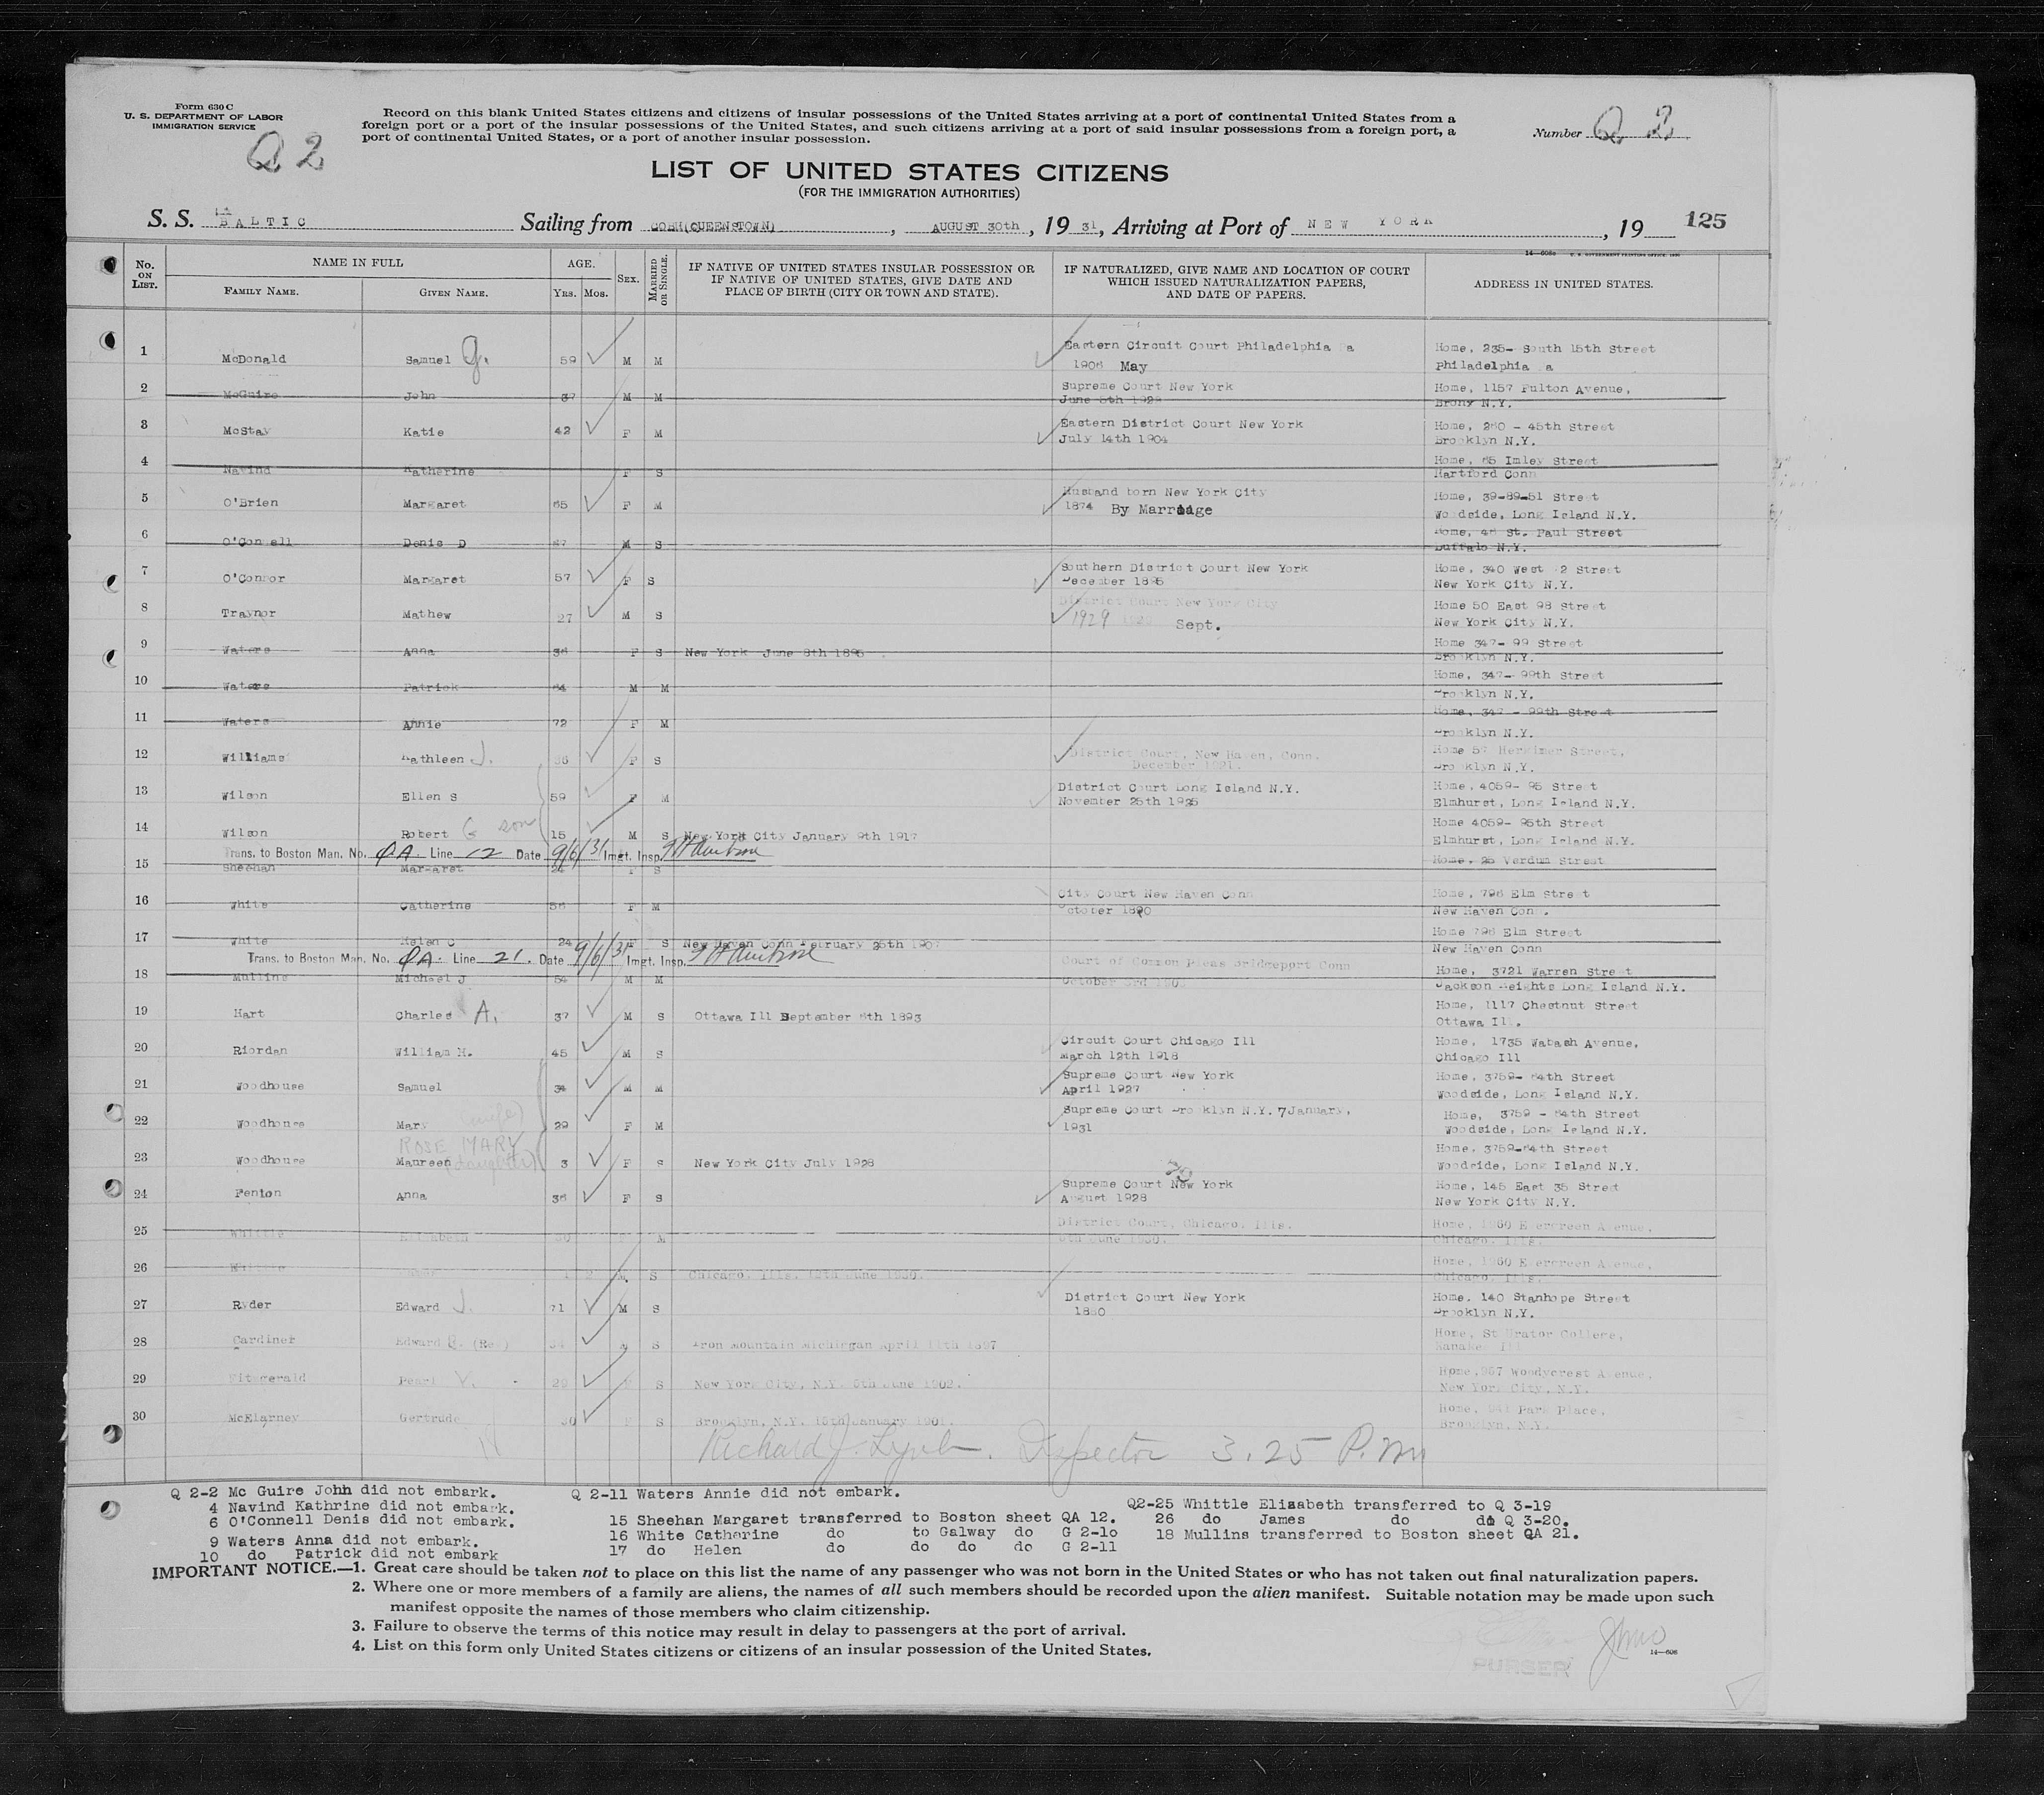 Form 630 C
U. S. DEPARTMENT OF LABOR
IMMIGRATION SERVICE
Q 2
Record on this blank United States citizens and citizens of insular possessions of the United States arriving at a port of continental United States from a
foreign port or a port of the insular possessions of the United States, and such citizens arriving at a port of said insular possessions from a foreign port, a
port of continental United States, or a port of another insular possession.
Number Q 2
LIST OF UNITED STATES CITIZENS
(FOR THE IMMIGRATION AUTHORITIES)
S. S. BALTIC Sailing from COBH(QUEENSTOWN), AUGUST 30th, 19 31, Arriving at Port of NEW YORK, 19 125
No. ON LIST. NAME IN FULL FAMILY NAME. GIVEN NAME. AGE. YRS. MOS. SEX. MARRIED OR SINGLE. IF NATIVE OF UNITED STATES INSULAR POSSESSION OR IF NATIVE OF UNITED STATES, GIVE DATE AND PLACE OF BIRTH (CITY OR TOWN AND STATE). IF NATURALIZED, GIVE NAME AND LOCATION OF COURT WHICH ISSUED NATURALIZATION PAPERS, AND DATE OF PAPERS. ADDRESS IN UNITED STATES.
1 McDonald Samuel G. 59 M M Eastern Circuit Court Philadelphia a Home, 235- South 15th Street
1906 May Philadelphia a
2 McGuire John 37 M M Supreme Court New York Home, 1157 Fulton Avenue,
June 8th 1929 Bronx N.Y.
3 McStay Katie 42 F M Eastern District Court New York Home, 260 - 45th Street
July 14th 1904 Brooklyn N.Y.
4 Navind Katherine F S Home, 65 Imley Street
Hartford Conn
5 O'Brien Margaret 65 F M Husband born New York City Home, 39-89-51 Street
1874 By Marriage Woodside, Long Island N.Y.
6 O'Connell Denis D 47 M S Home, 45 St. Paul Street
Buffalo N.Y.
7 O'Connor Margaret 57 F S Southern District Court New York Home, 340 West 2 Street
December 1895 New York City N.Y.
8 Traynor Mathew 27 M S District Court New York City Home 50 East 98 Street
1929 Sept. New York City N.Y.
9 Waters Anna 36 F S New York June 8th 1895 Home 347- 99 Street
Brooklyn N.Y.
10 Waters Patrick 64 M M Home, 347- 99th Street
Brooklyn N.Y.
11 Waters Annie 72 F M Home, 347 - 99th Street
Brooklyn N.Y.
12 Williams Kathleen J. 36 F S District Court, New Haven, Conn. Home 57 Herkimer Street,
December 1921. Brooklyn N.Y.
13 Wilson Ellen S 59 F M District Court Long Island N.Y. Home, 4059- 95 Street
November 25th 1925 Elmhurst, Long Island N.Y.
14 Wilson Robert G son 15 M S New York City January 9th 1917 Home 4059- 95th Street
Elmhurst, Long Island N.Y.
Trans. to Boston Man. No. QA. Line 12 Date 9/6/31 Imgt. Insp.
15 Sheehan Margaret 24 F S Home, 25 Verdun Street
16 White Catherine 56 F M City Court New Haven Conn Home, 796 Elm Street
October 1890 New Haven Conn.
17 White Helen C 24 F S New Haven Conn February 25th 1907 Home 796 Elm Street
New Haven Conn
Trans. to Boston Man. No. QA. Line 21. Date 9/6/31 Imgt. Insp.
18 Mullins Michael J 54 M M Court of Common Pleas Bridgeport Conn Home, 3721 Warren Street
October 3rd Jackson Heights Long Island N.Y.
19 Hart Charles A. 37 M S Ottawa Ill September 6th 1893 Home, 1117 Chestnut Street
Ottawa Ill.
20 Riordan William H. 45 M S Circuit Court Chicago Ill Home, 1735 Wabash Avenue,
March 12th 1918 Chicago Ill
21 Woodhouse Samuel 34 M M Supreme Court New York Home, 3759- 64th Street
April 1927 Woodside, Long Island N.Y.
22 Woodhouse Mary (wife) 29 F M Supreme Court Brooklyn N.Y. 7 January, Home, 3759 - 64th Street
1931 Woodside, Long Island N.Y.
23 Woodhouse ROSE MARY Maureen (daughter) 3 F S New York City July 1928 Home, 3759-64th Street
Woodside, Long Island N.Y.
24 Fenton Anna 36 F S Supreme Court New York 29 Home, 145 East 35 Street
August 1928 New York City N.Y.
25 Whittle Elizabeth 30 M District Court, Chicago. Ills. Home, 1960 Evergreen Avenue,
6th June 1930. Chicago. Ills.
26 Whittle James 1 2 M S Chicago. Ills. 12th June 1930. Home, 1960 Evergreen Avenue,
Chicago. Ills.
27 Ryder Edward J. 71 M S District Court New York Home. 140 Stanhope Street
1880 Brooklyn N.Y.
28 Gardiner Edward (Rev) 34 M S Iron Mountain Michirgan April 11th 1897 Home, St Viator College,
29 Fitzgerald Pearl V. 29 S New York City, N.Y. 8th June 1902. Home, 967 Woodycrest Avenue,
New York City, N.Y.
30 McElarney Gertrude 30 F S Brooklyn, N.Y. 15th January 1901. Home, Park Place,
Brooklyn. N.Y.
Richard J. Lynch. Inspector 3.25 P.M
Q 2-2 Mc Guire John did not embark.
4 Navind Kathrine did not embark.
6 O'Connell Denis did not embark.
9 Waters Anna did not embark.
10 do Patrick did not embark
Q 2-11 Waters Annie did not embark.
15 Sheehan Margaret transferred to Boston sheet QA 12.
16 White Catherine do to Galway do G 2-10
17 do Helen do do do do G 2-11
Q2-25 Whittle Elizabeth transferred to Q 3-19
26 do James do do Q 3-20.
18 Mullins transferred to Boston sheet QA 21.
IMPORTANT NOTICE.—1. Great care should be taken not to place on this list the name of any passenger who was not born in the United States or who has not taken out final naturalization papers.
2. Where one or more members of a family are aliens, the names of all such members should be recorded upon the alien manifest. Suitable notation may be made upon such
manifest opposite the names of those members who claim citizenship.
3. Failure to observe the terms of this notice may result in delay to passengers at the port of arrival.
4. List on this form only United States citizens or citizens of an insular possession of the United States.
PURSER
14—606